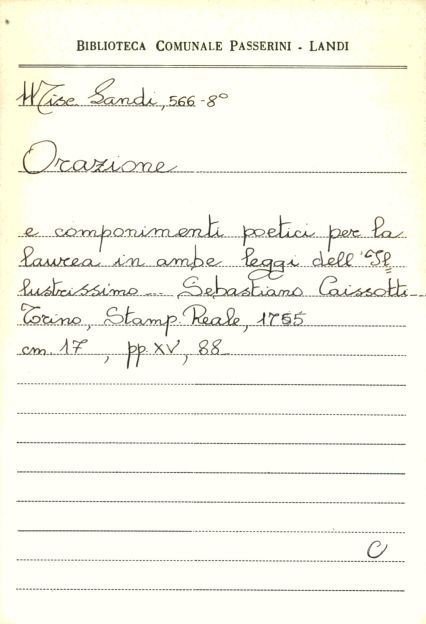 BIBLIOTECA COMUNALE PASSERINI - LANDI
Misc. Landi, 566-8°
Orazione
e componimenti poetici per la
laurea in ambe leggi dell'Il=
lustrissimo... Sebastiano Caissotti...
Torino, Stamp. Reale, 1755
cm. 17, pp. XV, 88
C